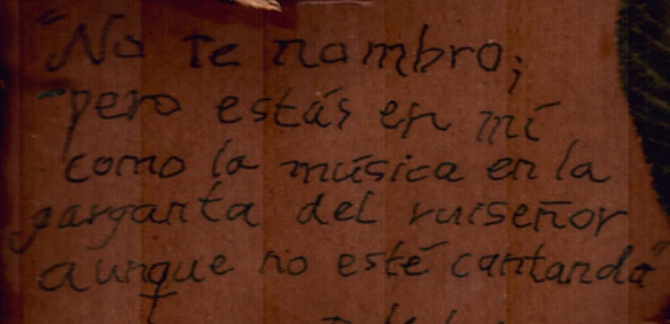 "No te nombro;
pero estás en mí
como la música en la
garganta del ruiseñor
aunque no esté cantando"